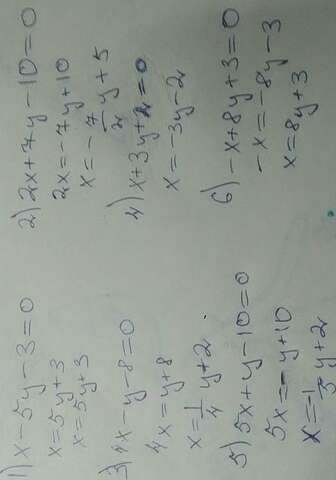 1) x - 5y - 3 = 0
x = 5y + 3
x = 5y + 3
2) 2x + 7y - 10 = 0
2x = -7y + 10
x = -7/2 y + 5
3) 4x - y - 8 = 0
4x = y + 8
x = 1/4 y + 2
4) x + 3y + 2 = 0
x = -3y - 2
5) 5x + y - 10 = 0
5x = -y + 10
x = -1/5 y + 2
6) -x + 8y + 3 = 0
-x = -8y - 3
x = 8y + 3